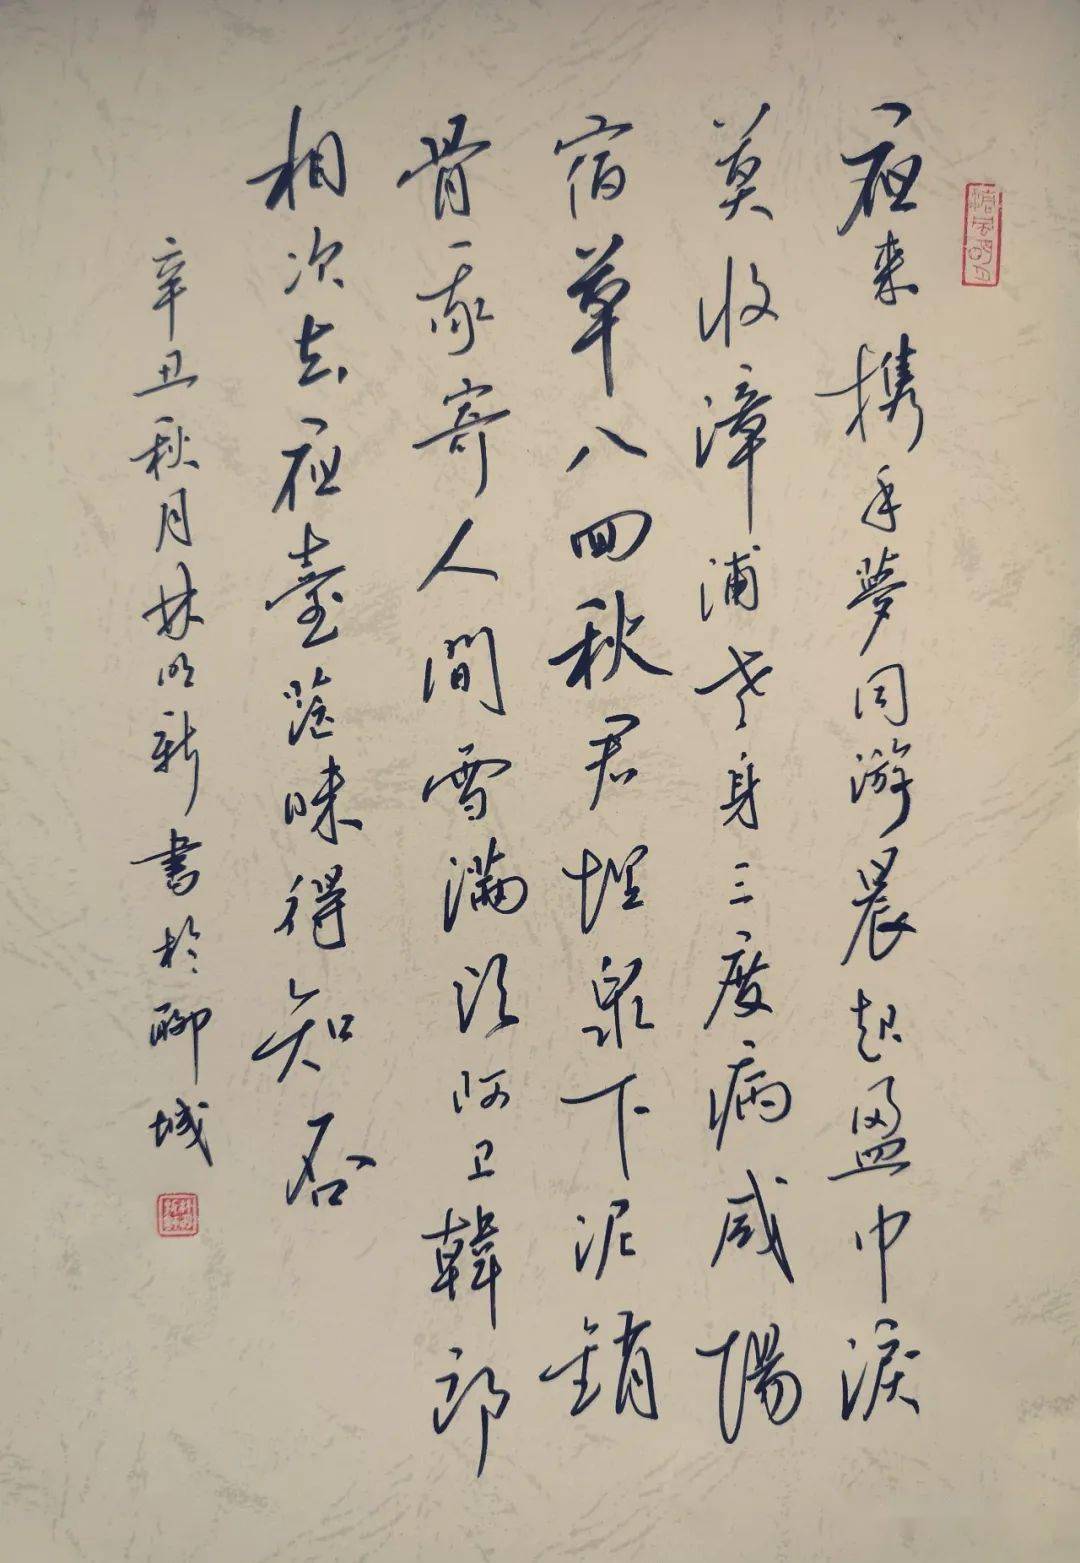 夜来携手夢同游晨起盈巾淚
莫收漳浦老身三度病咸陽
宿草八回秋君埋泉下泥銷
骨我寄人間雪滿头阿卫韓郎
相次去夜臺茫昧得知否
辛丑秋月林明新書於聊城